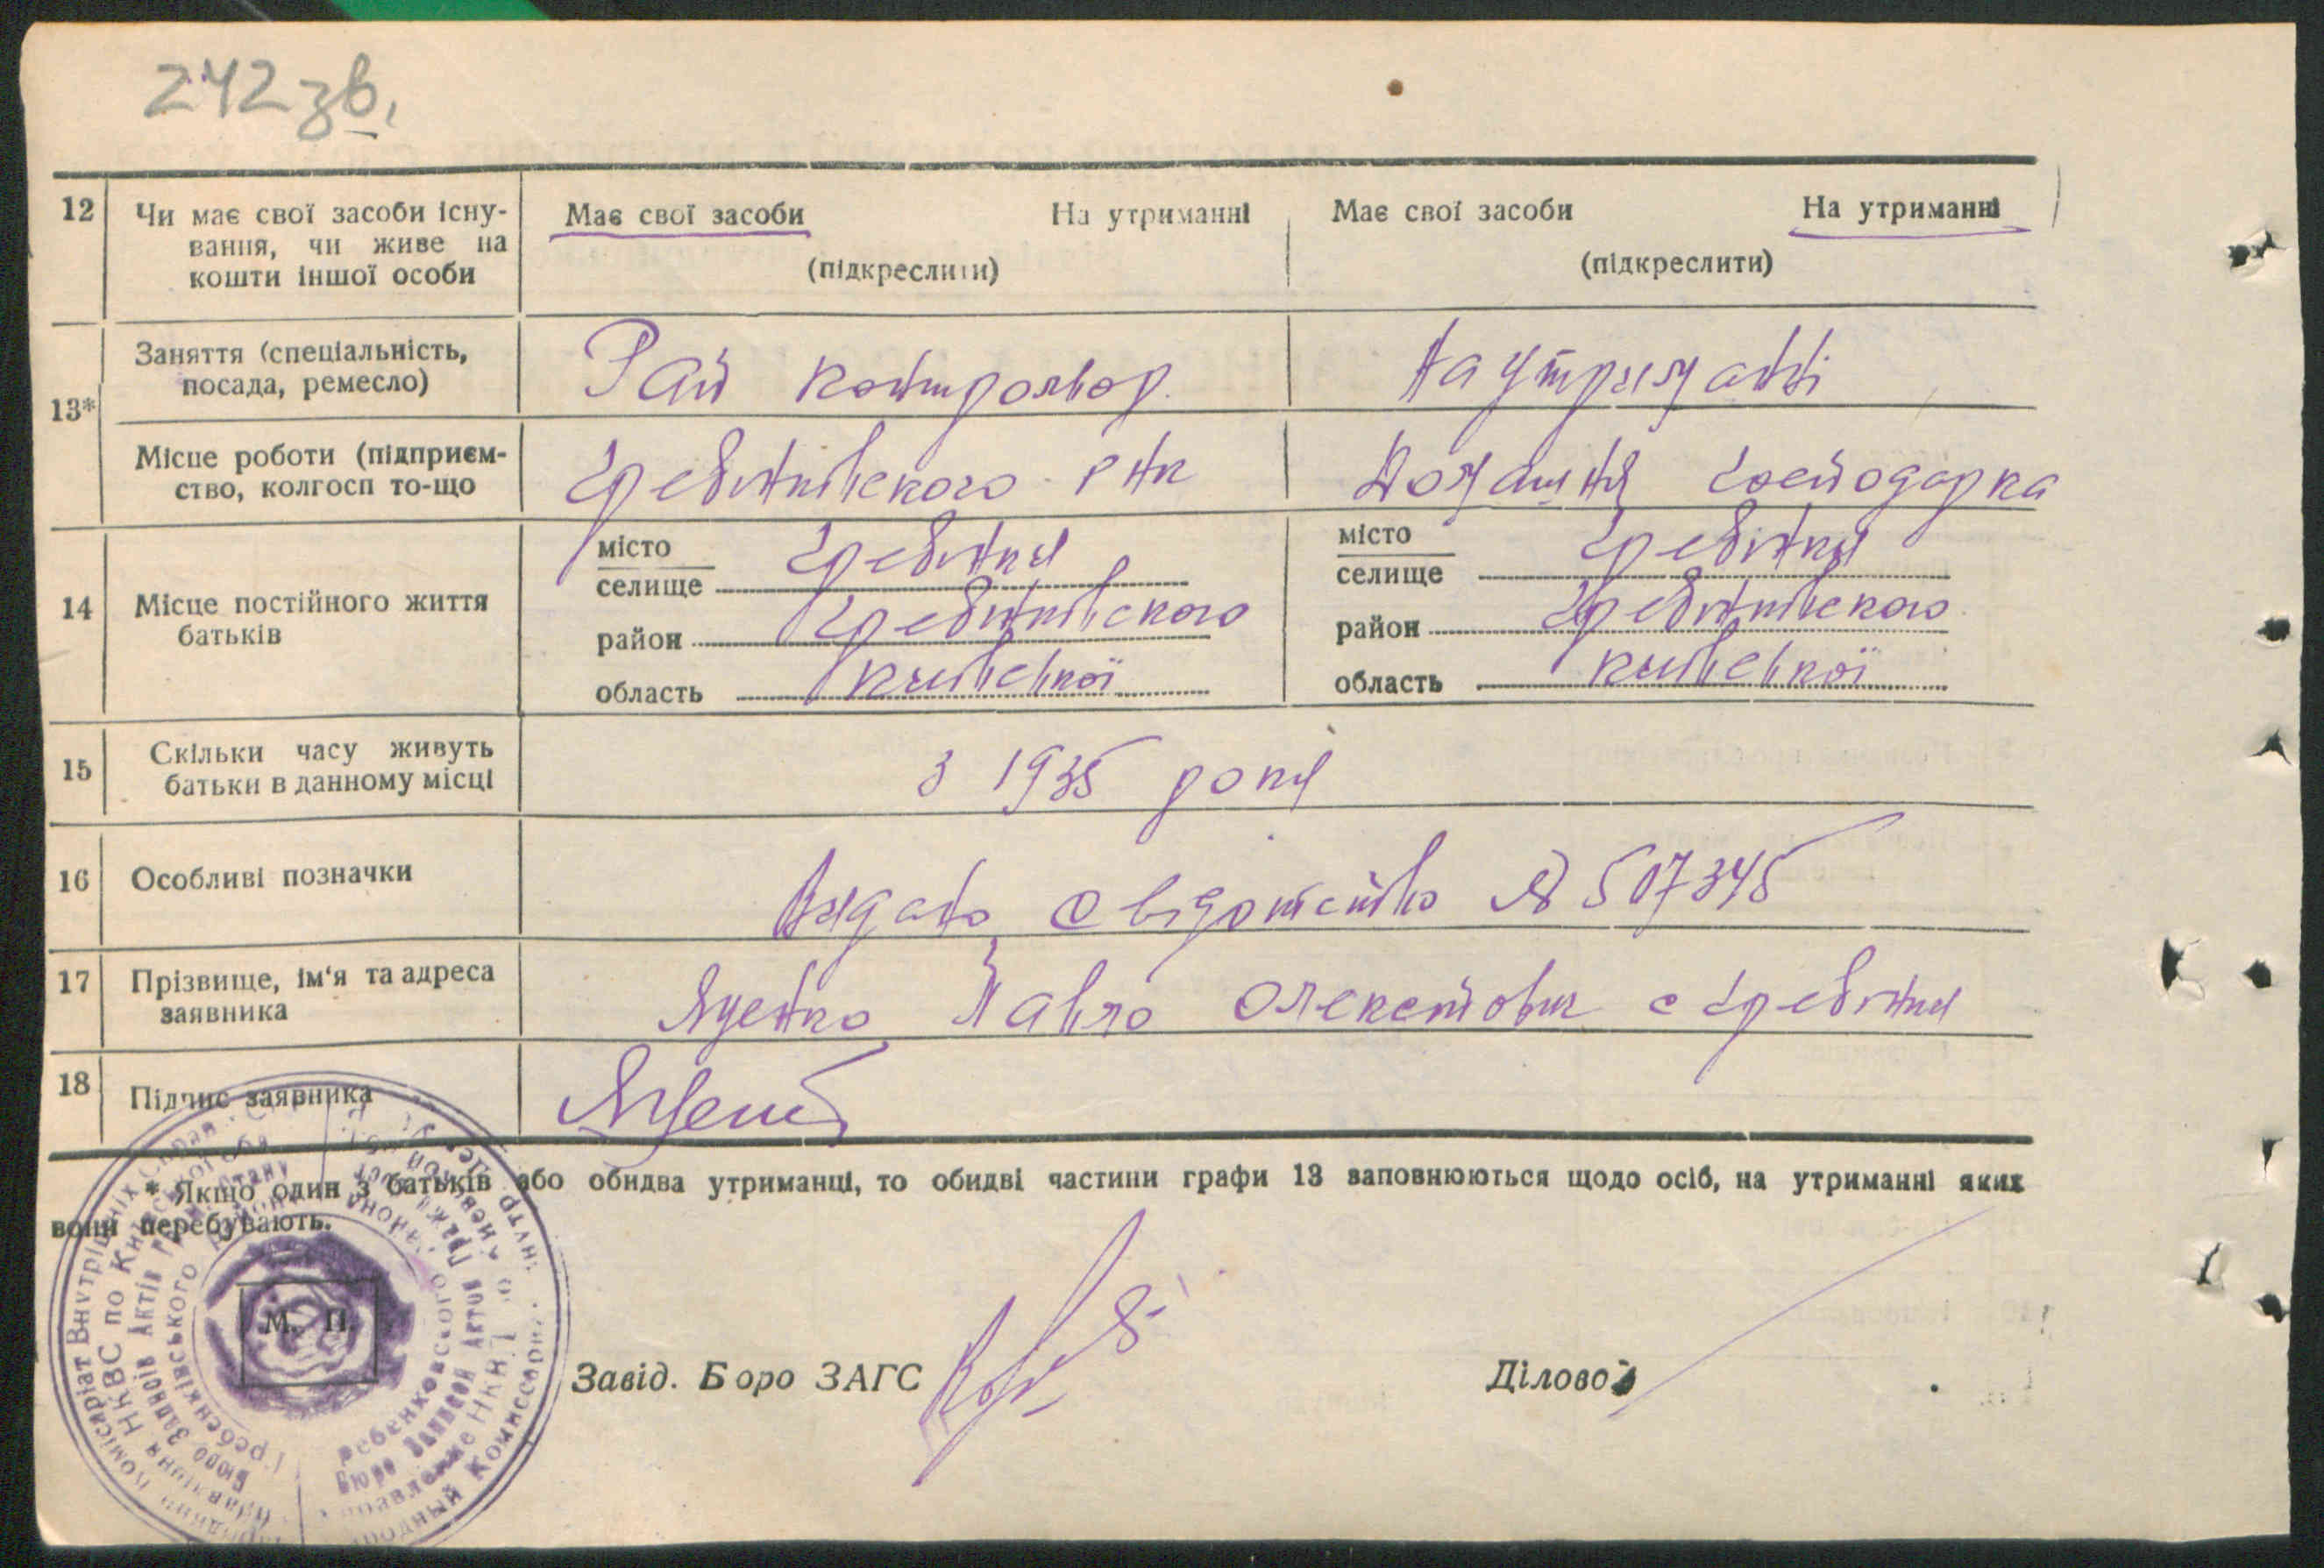 242 зв.
12 Чи має свої засоби існу-
вання, чи живе на
кошти іншої особи
Має свої засоби На утриманні
(підкреслити)
Має свої засоби На утриманні
(підкреслити)
13*
Заняття (спеціальність,
посада, ремесло)
Рай контрольор.
На утриманні
Місце роботи (підприєм-
ство, колгосп то-що
Гребінківського РНК
Домашня господарка
14 Місце постійного життя
батьків
місто
селище Гребінки
район Гребінківського
область Київської
місто
селище Гребінки
район Гребінківського
область Київської
15 Скільки часу живуть
батьки в данному місці
з 1935 року
16 Особливі позначки
Видано свідотство № 507345
17 Прізвище, ім'я та адреса
заявника
Яценко Павло Олексійович с Гребінки
18 Підпис заявника
* Якщо один з батьків або обидва утриманці, то обидві частини графи 13 заповнюються щодо осіб, на утриманні яких
вони перебувають.
М. П.
Завід. Боро ЗАГС
Діловод
Комісаріат Внутрішніх Справ
НКВС по Київській
Бюро Записів Актів
Гребенківського